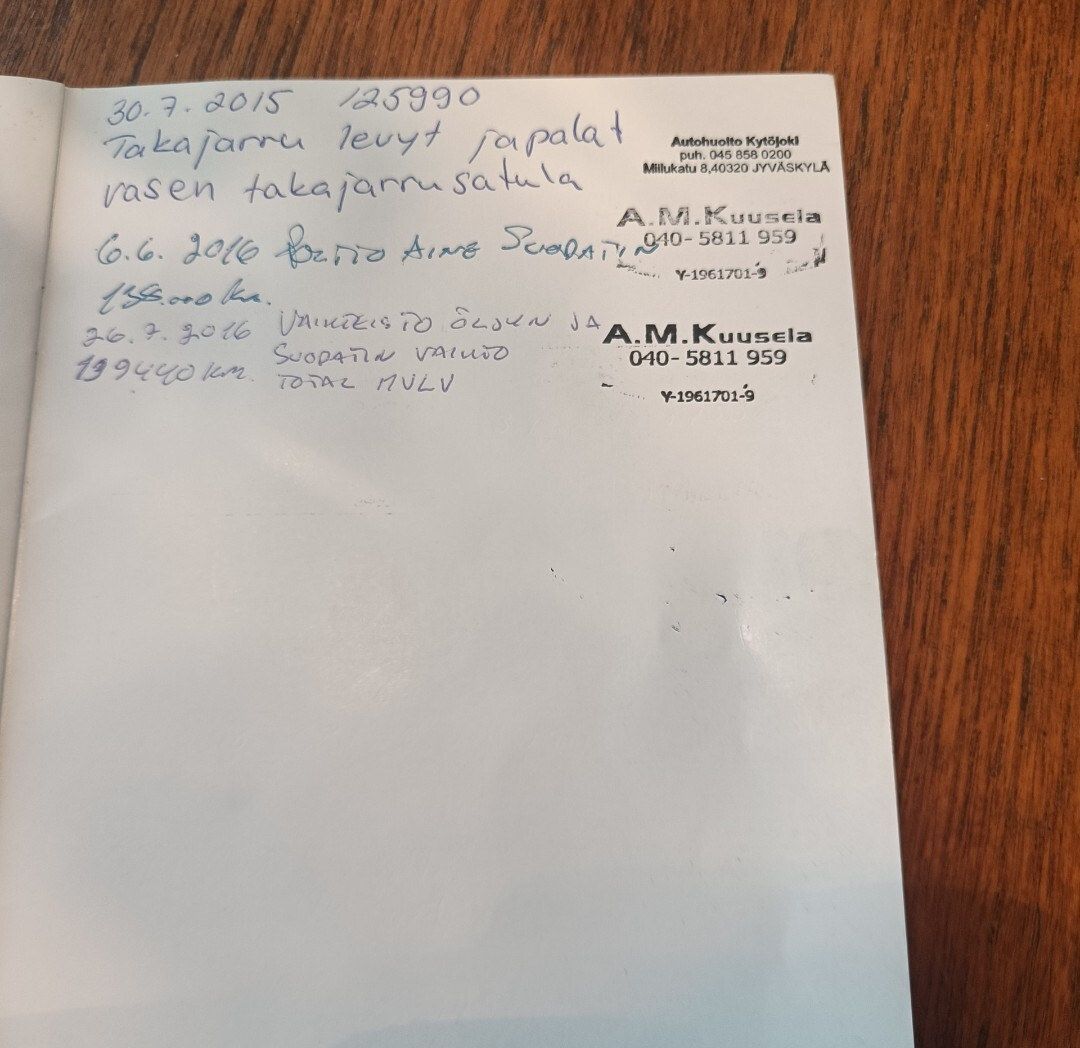 30.7.2015 125990
Takajarru levyt japalat
vasen takajarrusatula
Autohuolto Kytöjoki
puh. 045 858 0200
Miilukatu 8,40320 JYVÄSKYLÄ
6.6. 2016 POLTTO AINE SUODATIN
138.000 km.
A.M.Kuusela
040-5811 959
Y-1961701-9
26.7.2016 VAIHTEISTO ÖLJYN JA
SUODATIN VAIHTO
139440 km. TOTAL MVLV
A.M.Kuusela
040-5811 959
Y-1961701-9